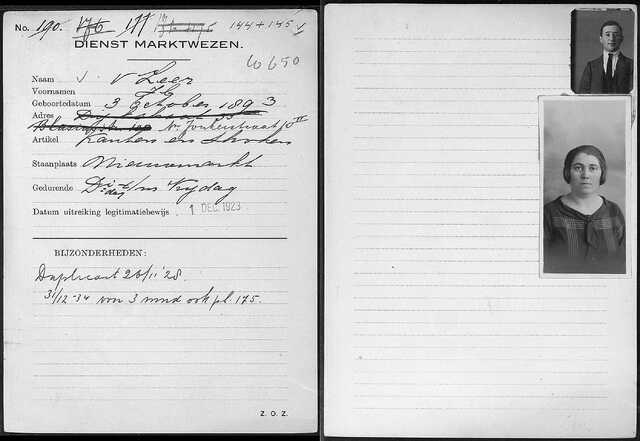 No. 190. 176 177 144 + 145
DIENST MARKTWEZEN.
60650
Naam v. Leer
Voornamen
Geboortedatum 3 October 1893
Adres
Nr. Jonkerstraat
Artikel Kanten en
Staanplaats Nieuwmarkt
Gedurende Di-dag t/m Vrydag
Datum uitreiking legitimatiebewijs 1 DEC. 1923
BIJZONDERHEDEN:
Duplicaat 26/11 '28.
31/12-34 voor 3 mnd ook pl. 175.
Z.O.Z.